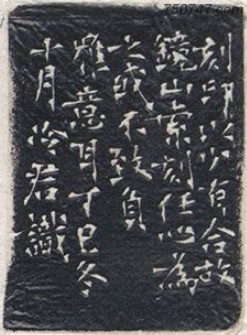 刻印以少有合故
鏡山索刻任心為
之或不致負
雅意耳丁巳冬
十月冷君識
750747.com